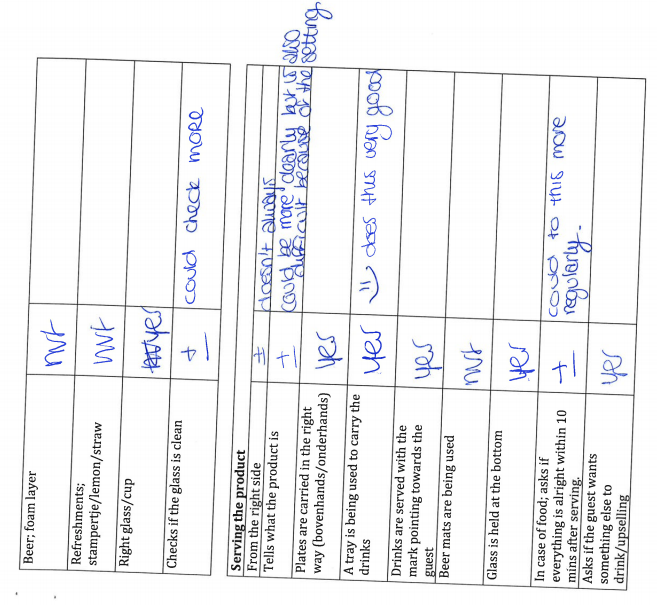 Beer; foam layer
nvt
Refreshments;
stampertje/lemon/straw
nvt
Right glass/cup
yes
Checks if the glass is clean
+-
could check more
Serving the product
From the right side
±
doesn't always
Tells what the product is
+-
could be more clearly but is also
difficult because of the setting
Plates are carried in the right
way (bovenhands/onderhands)
yes
A tray is being used to carry the
drinks
yes
=) does this very good
Drinks are served with the
mark pointing towards the
guest
yes
Beer mats are being used
nvt
Glass is held at the bottom
yes
In case of food; asks if
everything is alright within 10
mins after serving,
+-
could to this more
regularly.
Asks if the guest wants
something else to
drink/upselling
yes